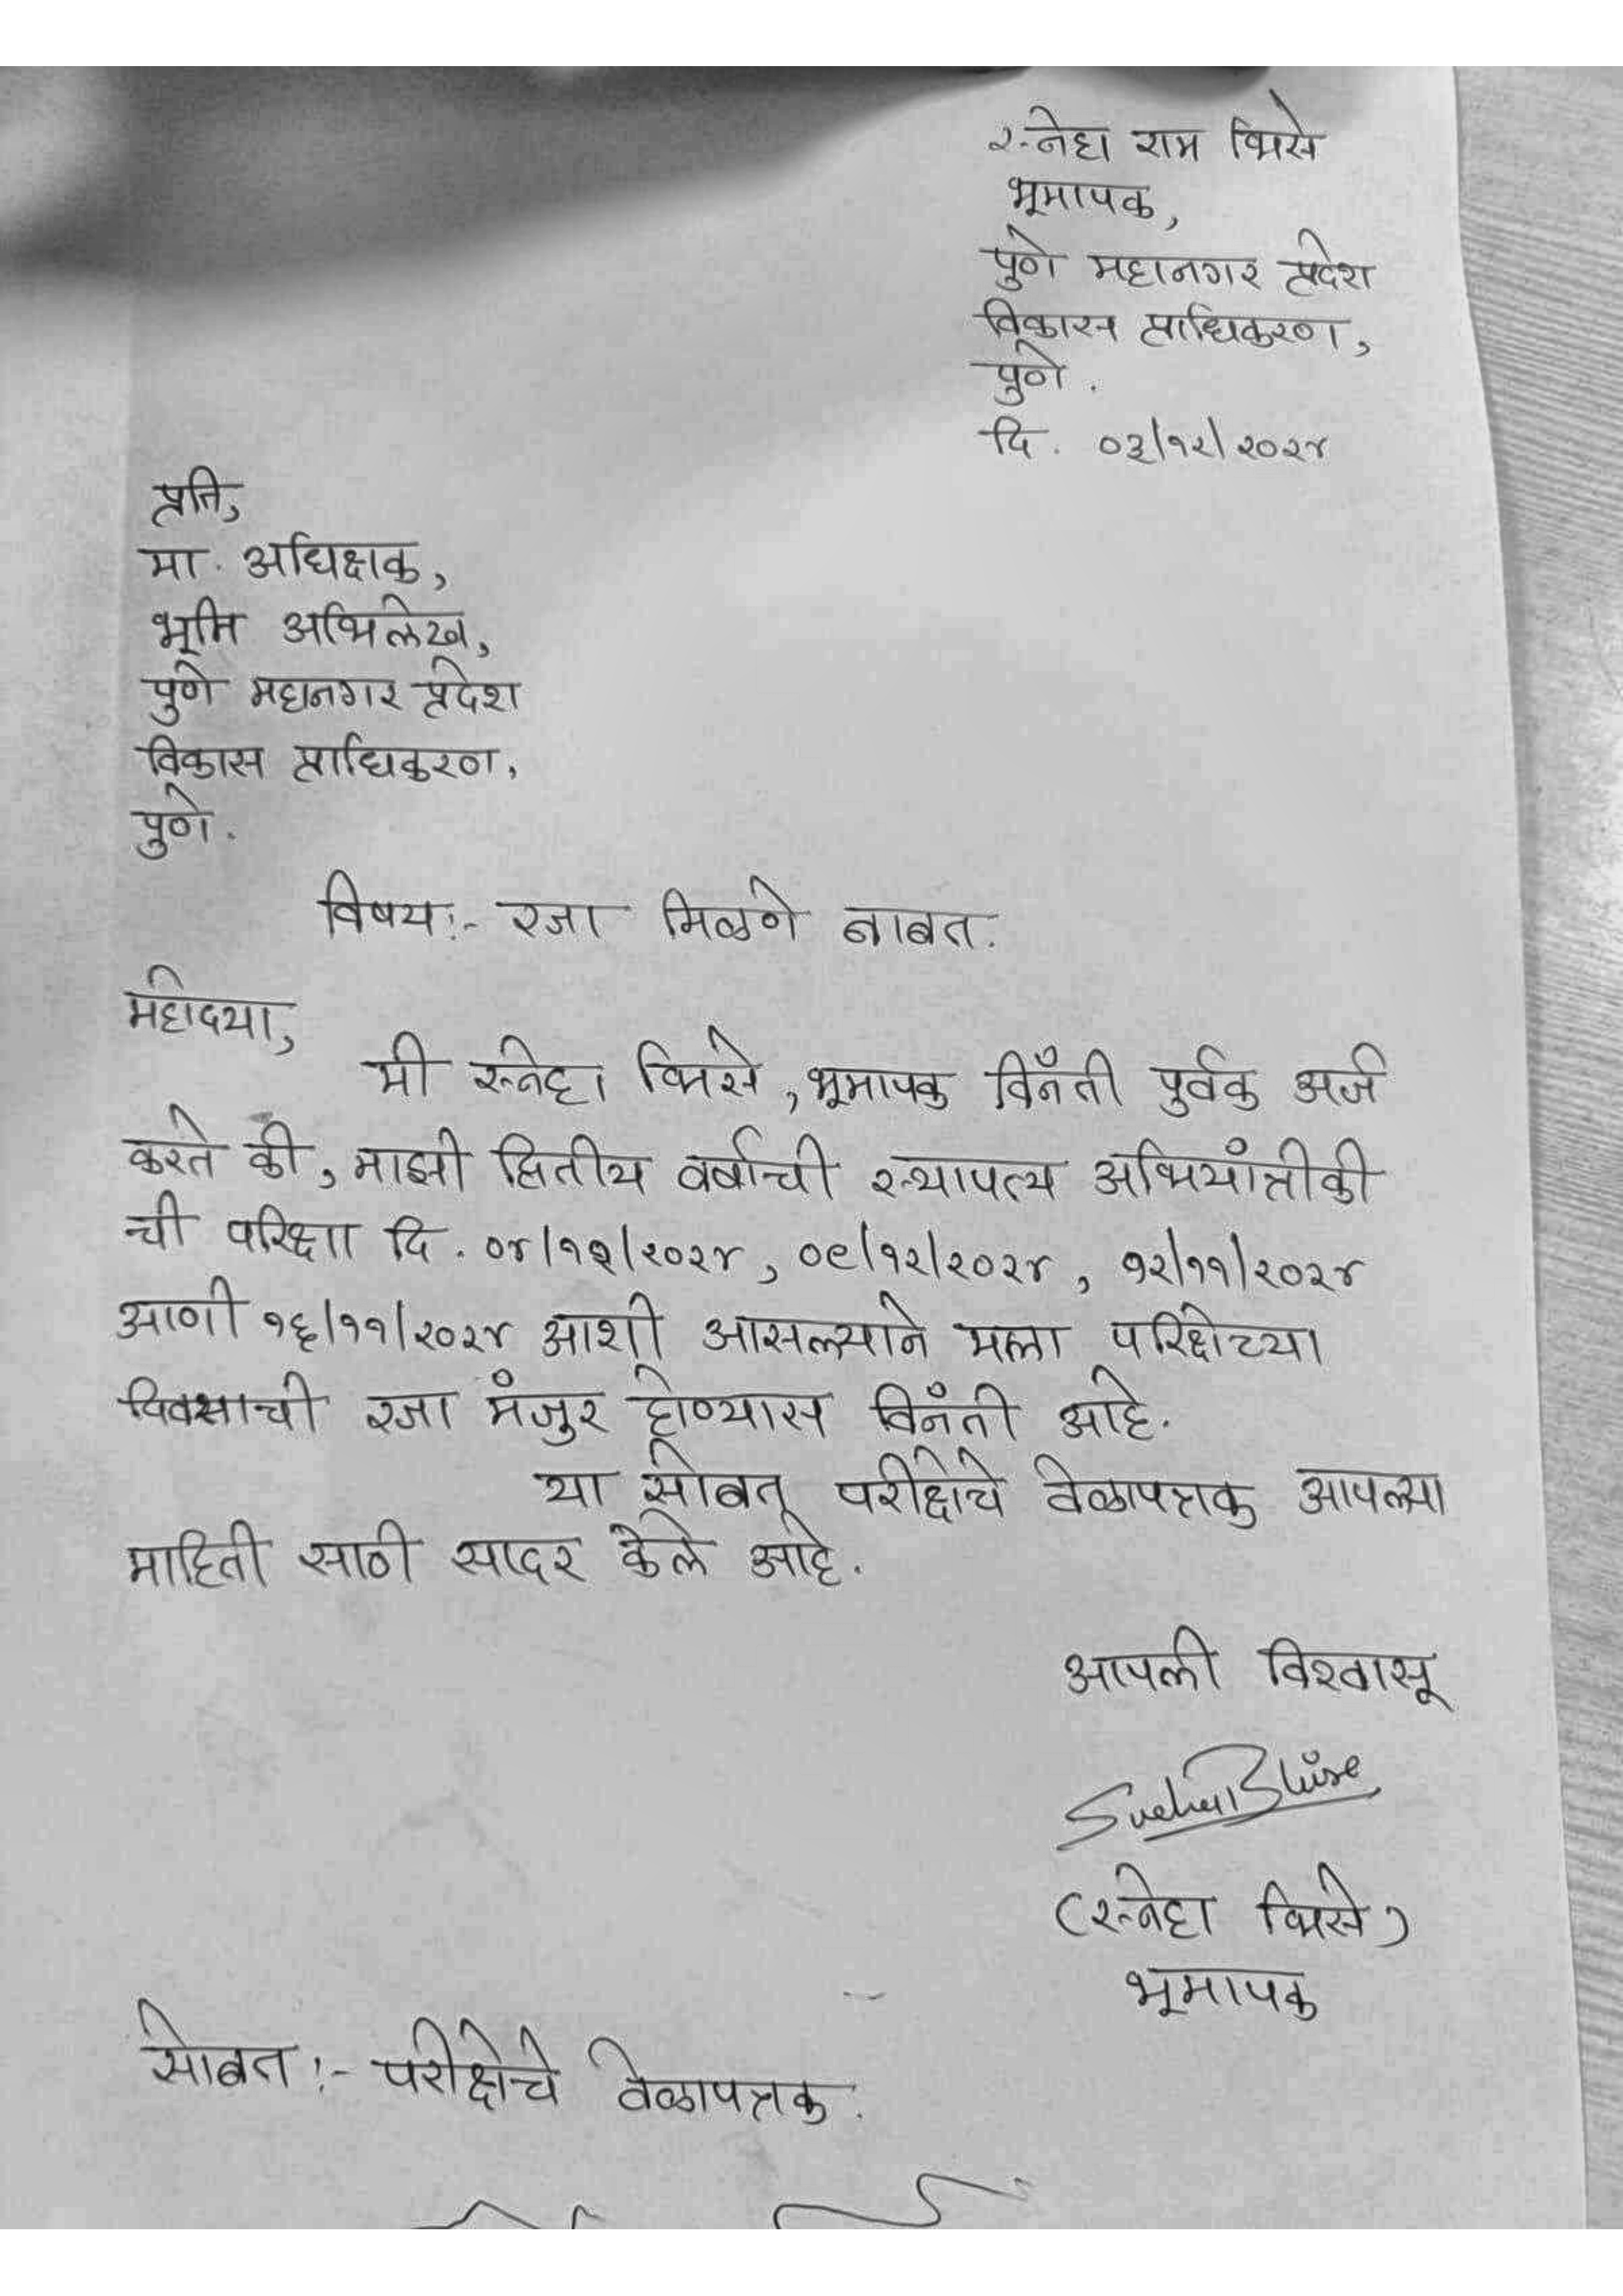 स्नेहा राम भिसे
भूमापक,
पुणे महानगर प्रदेश
विकास प्राधिकरण,
पुणे.
दि. ०३/१२/२०२४
प्रति,
मा. अधिक्षक,
भूमि अभिलेख,
पुणे महानगर प्रदेश
विकास प्राधिकरण,
पुणे.
विषय:- रजा मिळणे बाबत.
महोदया,
मी स्नेहा भिसे, भूमापक विनँती पुर्वक अर्ज
करते की, माझी द्वितीय वर्षाची स्थापत्य अभियांत्रीकी
ची परिक्षा दि. ०४/१२/२०२४, ०९/१२/२०२४, १२/११/२०२४
आणी १६/११/२०२४ आशी आसल्याने मला परिक्षेच्या
दिवसाची रजा मंजुर होण्यास विनँती आहे.
या सोबत परीक्षेचे वेळापत्रक आपल्या
माहिती साठी सादर केले आहे.
आपली विश्वासू
Sneha Bhise
(स्नेहा भिसे)
भूमापक
सोबत:- परीक्षेचे वेळापत्रक.